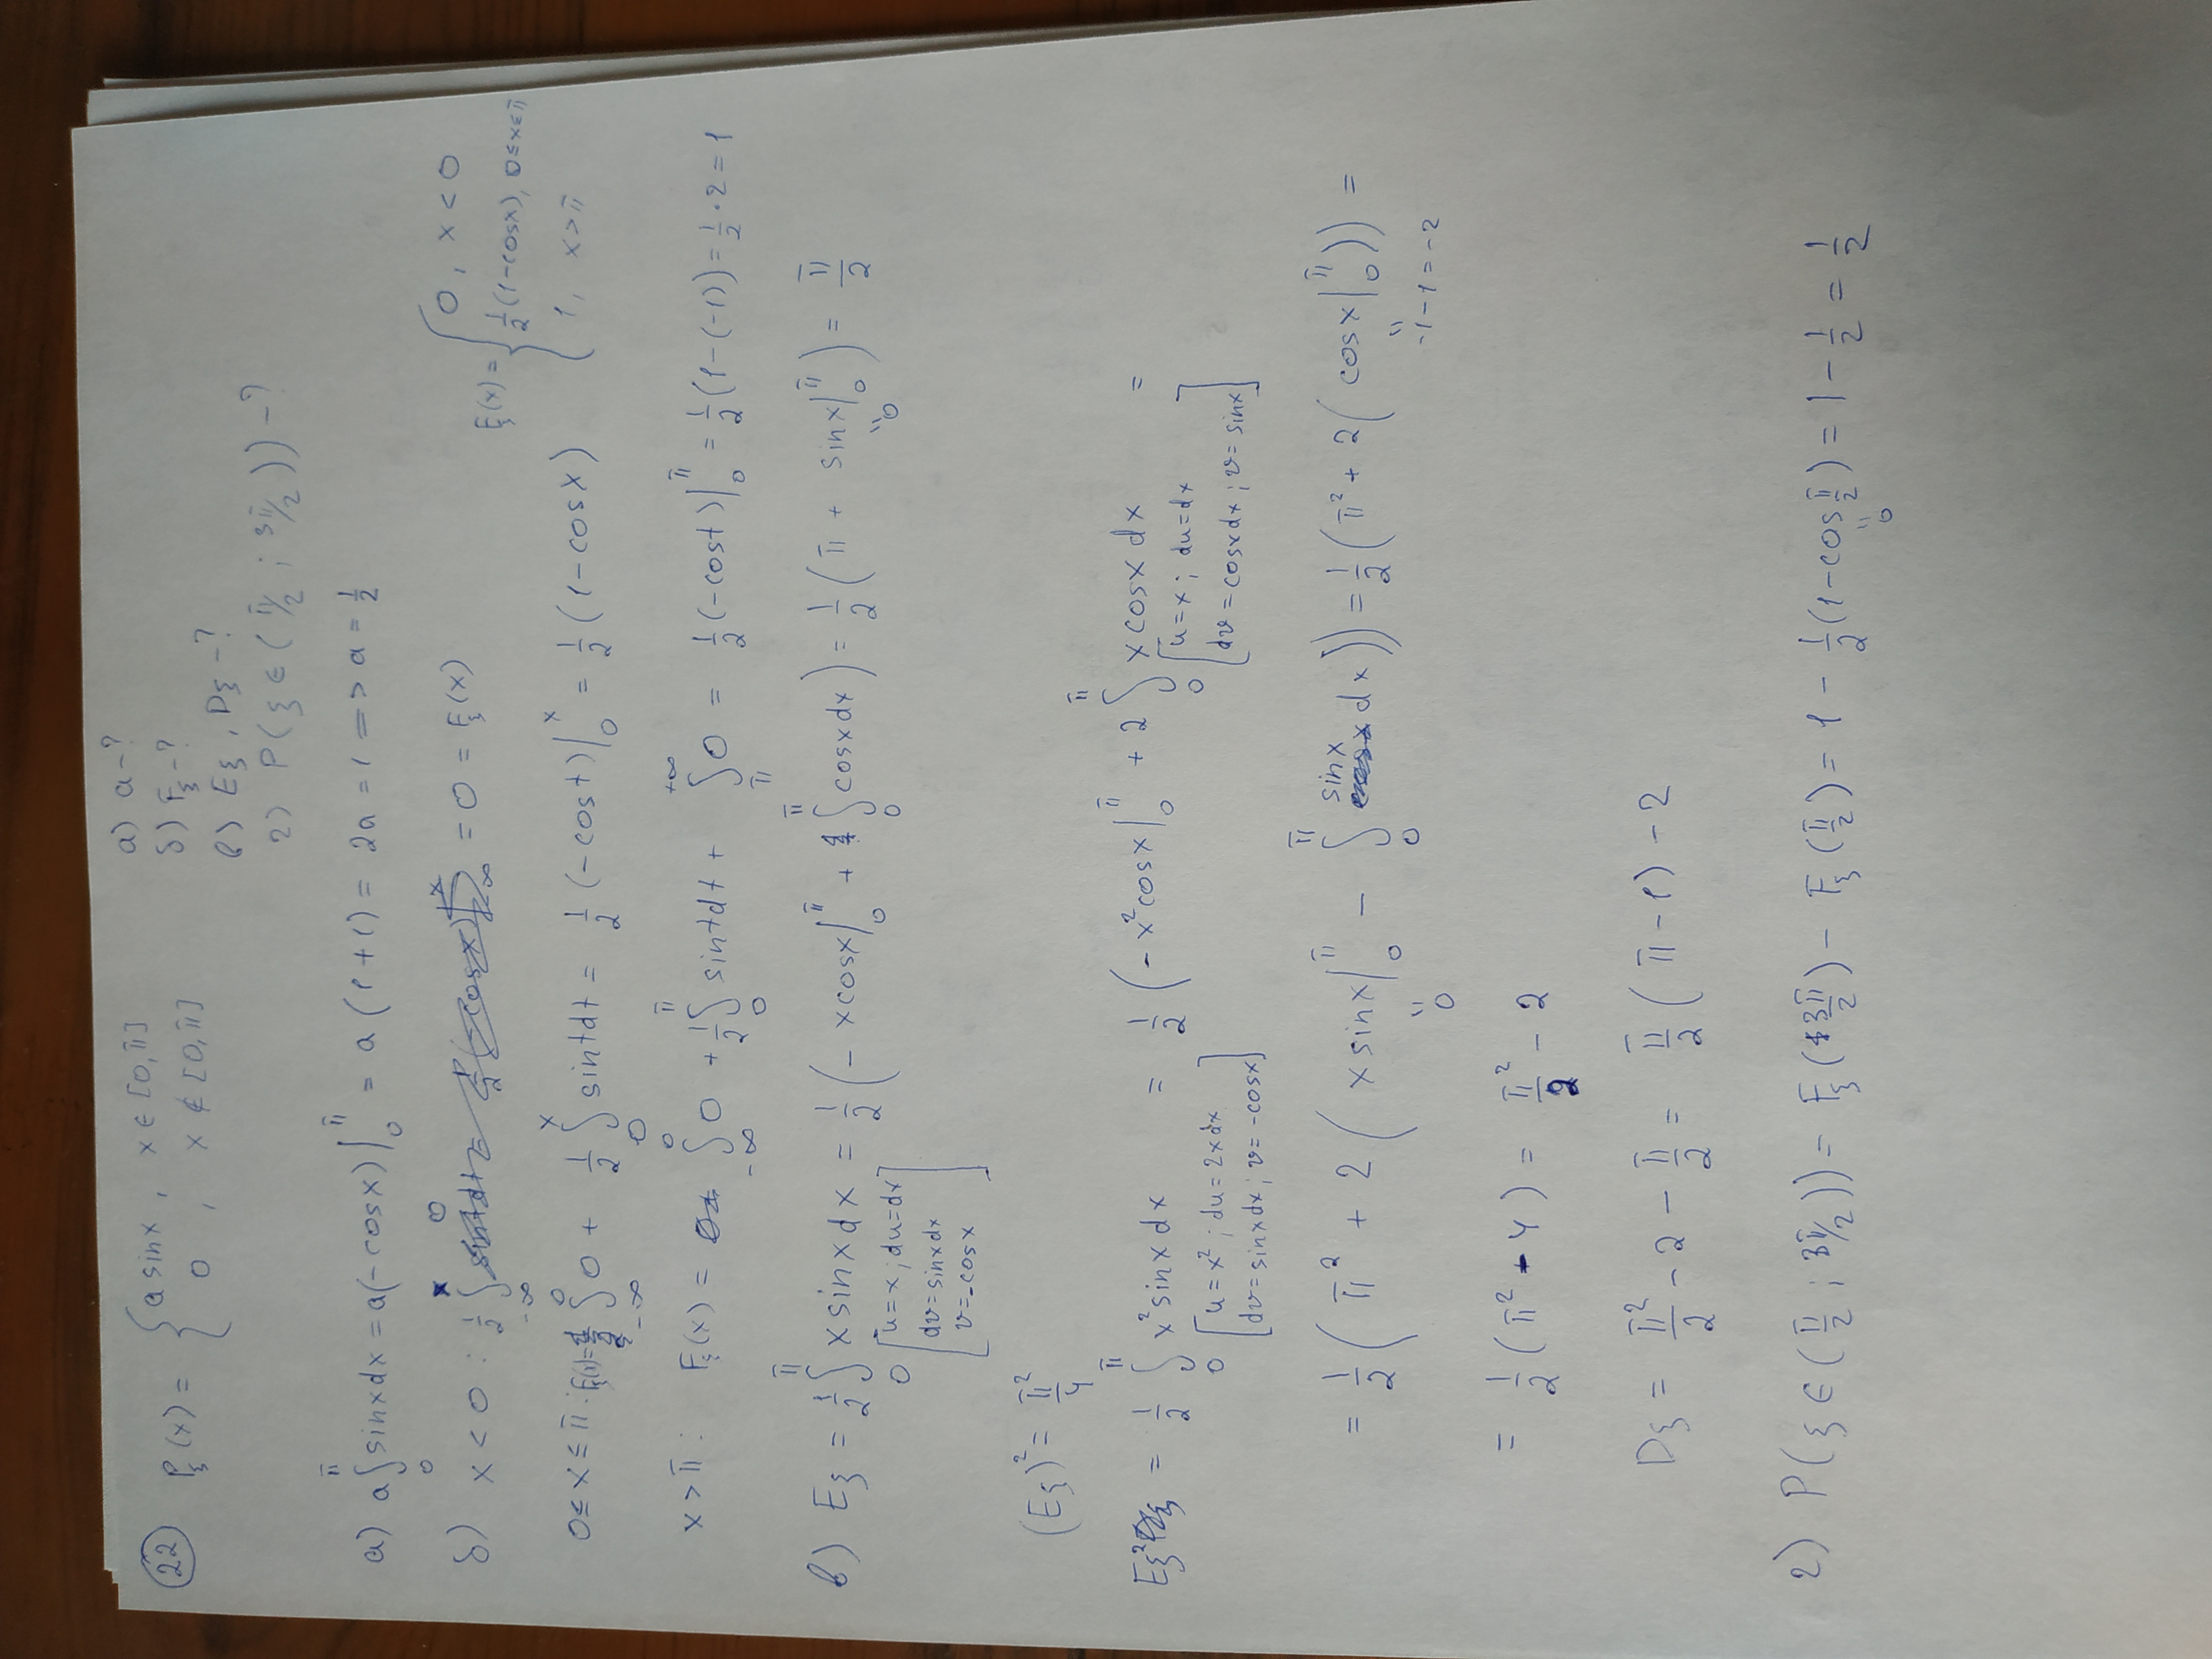 22 P_ξ(x) = { a sinx , x ∈ [0,π]
0 , x ∉ [0,π]
а) a - ?
б) F_ξ - ?
в) Eξ , Dξ - ?
г) P(ξ ∈ (π/2 ; 3π/2)) - ?
а) a ∫_0^π sinxdx = a(-cosx)|_0^π = a (1+1) = 2a = 1 => a = 1/2
б) x < 0 : 1/2 ∫_{-∞}^x 0 = 0 = F_ξ(x)
F_ξ(x) = { 0 , x < 0
1/2 (1-cosx), 0≤x≤π
1, x>π
0 ≤ x ≤ π : F_ξ(x) = ∫_{-∞}^0 0 + 1/2 ∫_0^x sintdt = 1/2 (-cost)|_0^x = 1/2 (1-cosx)
x > π : F_ξ(x) = ∫_{-∞}^0 0 + 1/2 ∫_0^π sintdt + ∫_π^{+∞} 0 = 1/2 (-cost)|_0^π = 1/2 (1-(-1)) = 1/2 · 2 = 1
в) Eξ = 1/2 ∫_0^π x sinxdx = 1/2 (- xcosx|_0^π + ∫_0^π cosxdx) = 1/2 (π + sinx|_0^π) = π/2
[u=x; du=dx
dv=sinxdx
v=-cosx]
"0
(Eξ)² = π²/4
Eξ² = 1/2 ∫_0^π x²sinxdx = 1/2 (- x²cosx|_0^π + 2 ∫_0^π xcosx dx =
[u=x²; du=2xdx
dv=sinxdx; v=-cosx]
[u=x; du=dx
dv=cosxdx; v=sinx]
= 1/2 (π² + 2 (x sinx|_0^π - ∫_0^π sinx dx)) = 1/2 (π² + 2 (cosx|_0^π)) =
" 0
" -1-1=-2
= 1/2 (π² - 4) = π²/2 - 2
Dξ = π²/2 - 2 - π/2 = π/2 (π-1) - 2
г) P(ξ ∈ (π/2 ; 3π/2)) = F_ξ(3π/2) - F_ξ(π/2) = 1 - 1/2 (1-cos π/2) = 1 - 1/2 = 1/2
" 0